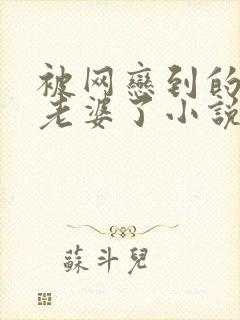 被网戀到的
老婆了小説
蘇斗兒